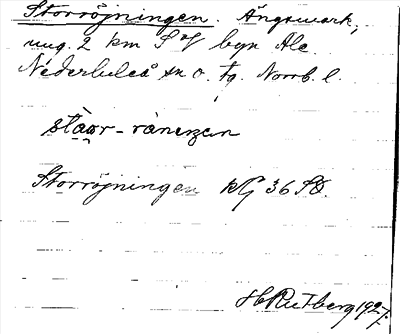 Storröjningen. Ängsmark,
ung. 2 km S om byn Ale
Nederluleå sn o. tg. Norrb. l.
stòor-rànezan
Storröjningen kG 36 SO.
H Rutberg 1927.